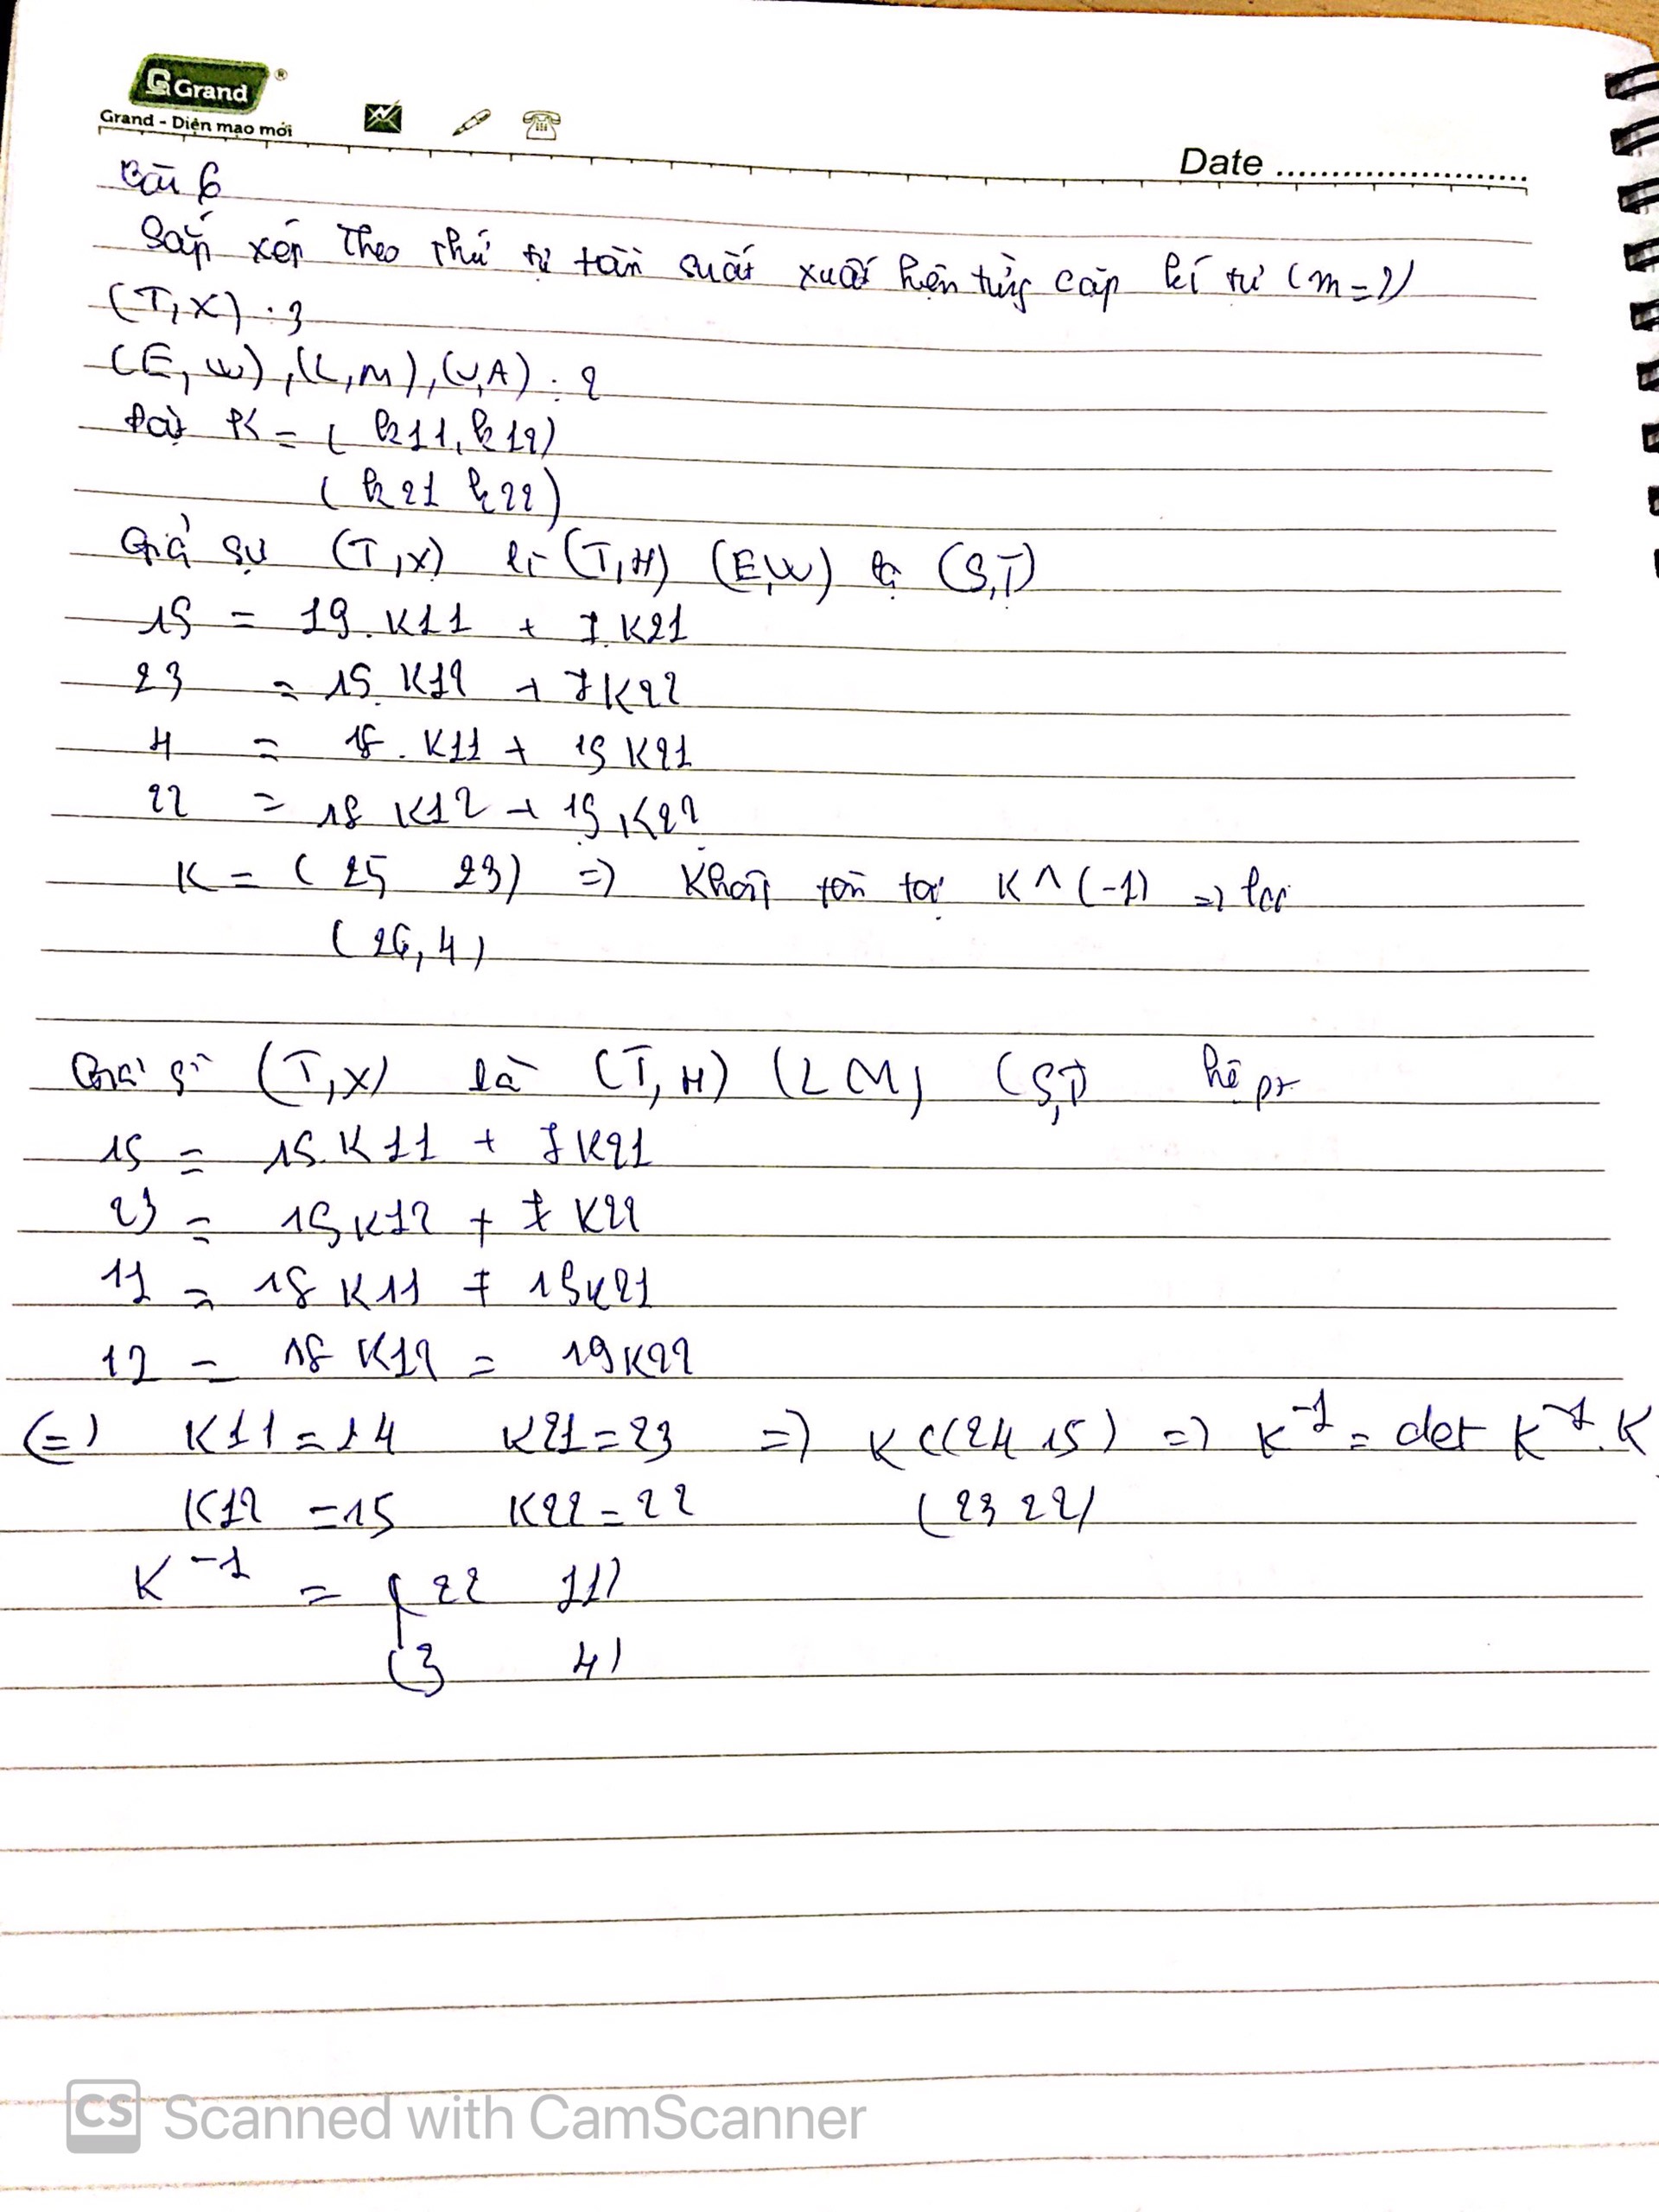 Grand
Grand - Diện mạo mới
Date
Câu 6
Sắp xếp theo thứ tự tần suất xuất hiện từng cặp kí tự (m=2)
(T,X) : 3
(E,W), (L,M), (V,A) : 2
Đặt K = ( k11, k12)
( k21 k22)
Giả sự (T,X) là (T,H) (E,W) là (S,T)
19 = 19. K11 + 7. K21
23 = 19 K12 + 7K22
4 = 18. K11 + 19 K21
22 = 18 K12 + 19 K22
K = ( 25 23) => Không tồn tại K ^ (-1) =>
(26, 4)
Giả sử (T,X) là (T,H) (L M) (S,T) hệ pt
19 = 19. K11 + 7K21
23 = 19K12 + 7 K22
11 = 18 K11 + 19K21
12 = 18 K12 = 19K22
(=) K11 = 24 K21 = 23 => K ((24 15) => K^-1 = det K^-1. K
K12 = 15 K22 = 22 (23 22)
K^-1 = ( 22 11)
(3 4)
CS Scanned with CamScanner